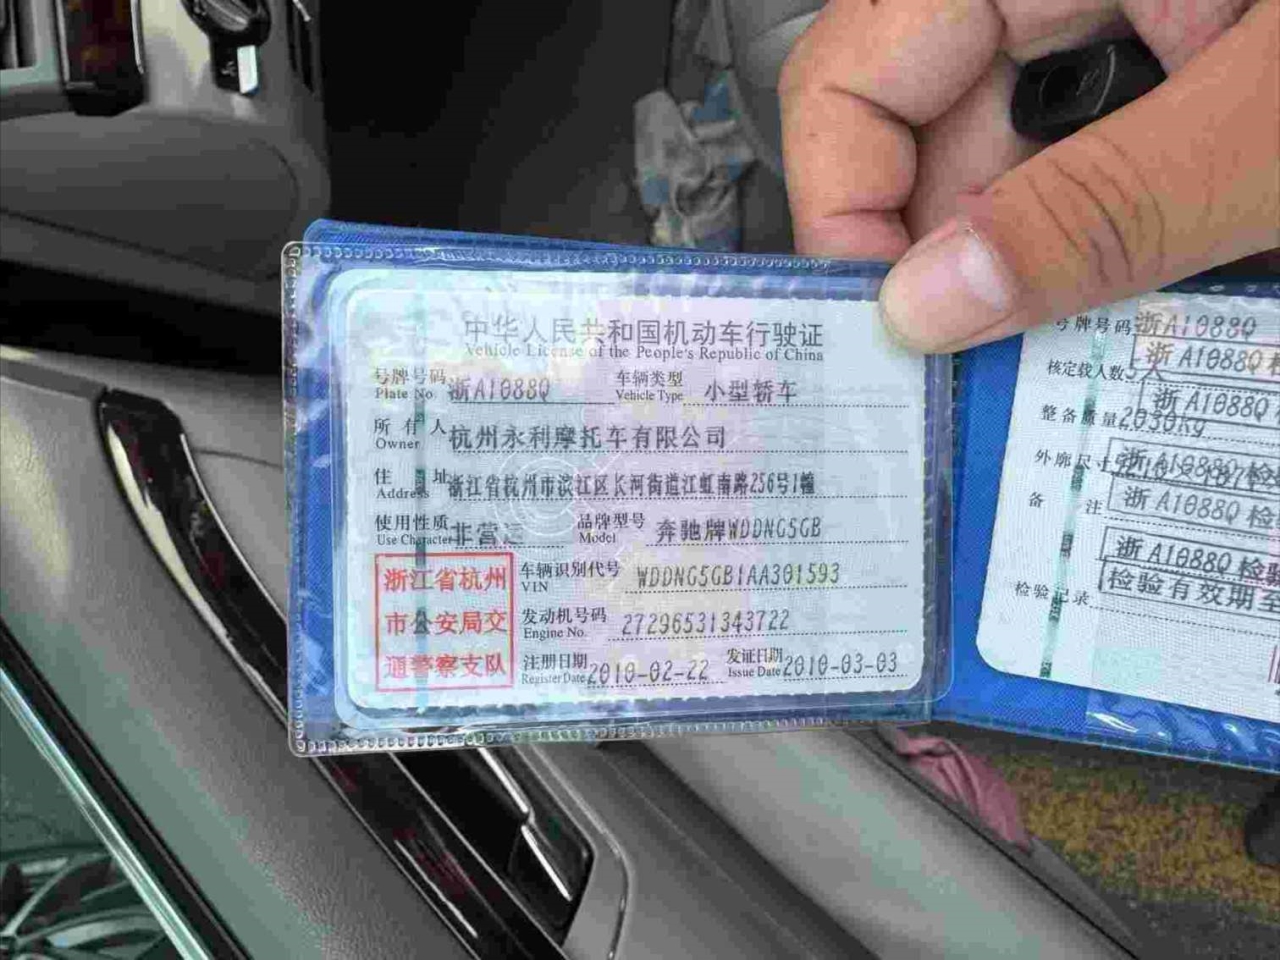 中华人民共和国机动车行驶证
Vehicle License of the People's Republic of China
号牌号码 浙A1088Q 车辆类型 小型轿车
Plate No. Vehicle Type
所有人 杭州永利摩托车有限公司
Owner
住址 浙江省杭州市滨江区长河街道江虹南路256号1幢
Address
使用性质 非营运 品牌型号 奔驰牌WDDNG5GB
Use Character Model
浙江省杭州
市公安局交
通警察支队
车辆识别代号 WDDNG5GB1AA301593
VIN
发动机号码 27296531343722
Engine No.
注册日期 2010-02-22 发证日期 2010-03-03
Register Date Issue Date
号牌号码 浙A1088Q
浙A1088Q检
核定载人数 5人
浙A1088Q
整备质量 2030kg
外廓尺寸
浙A1088Q检
备注
浙A1088Q检
浙A1088Q检验
检验有效期至
检验记录